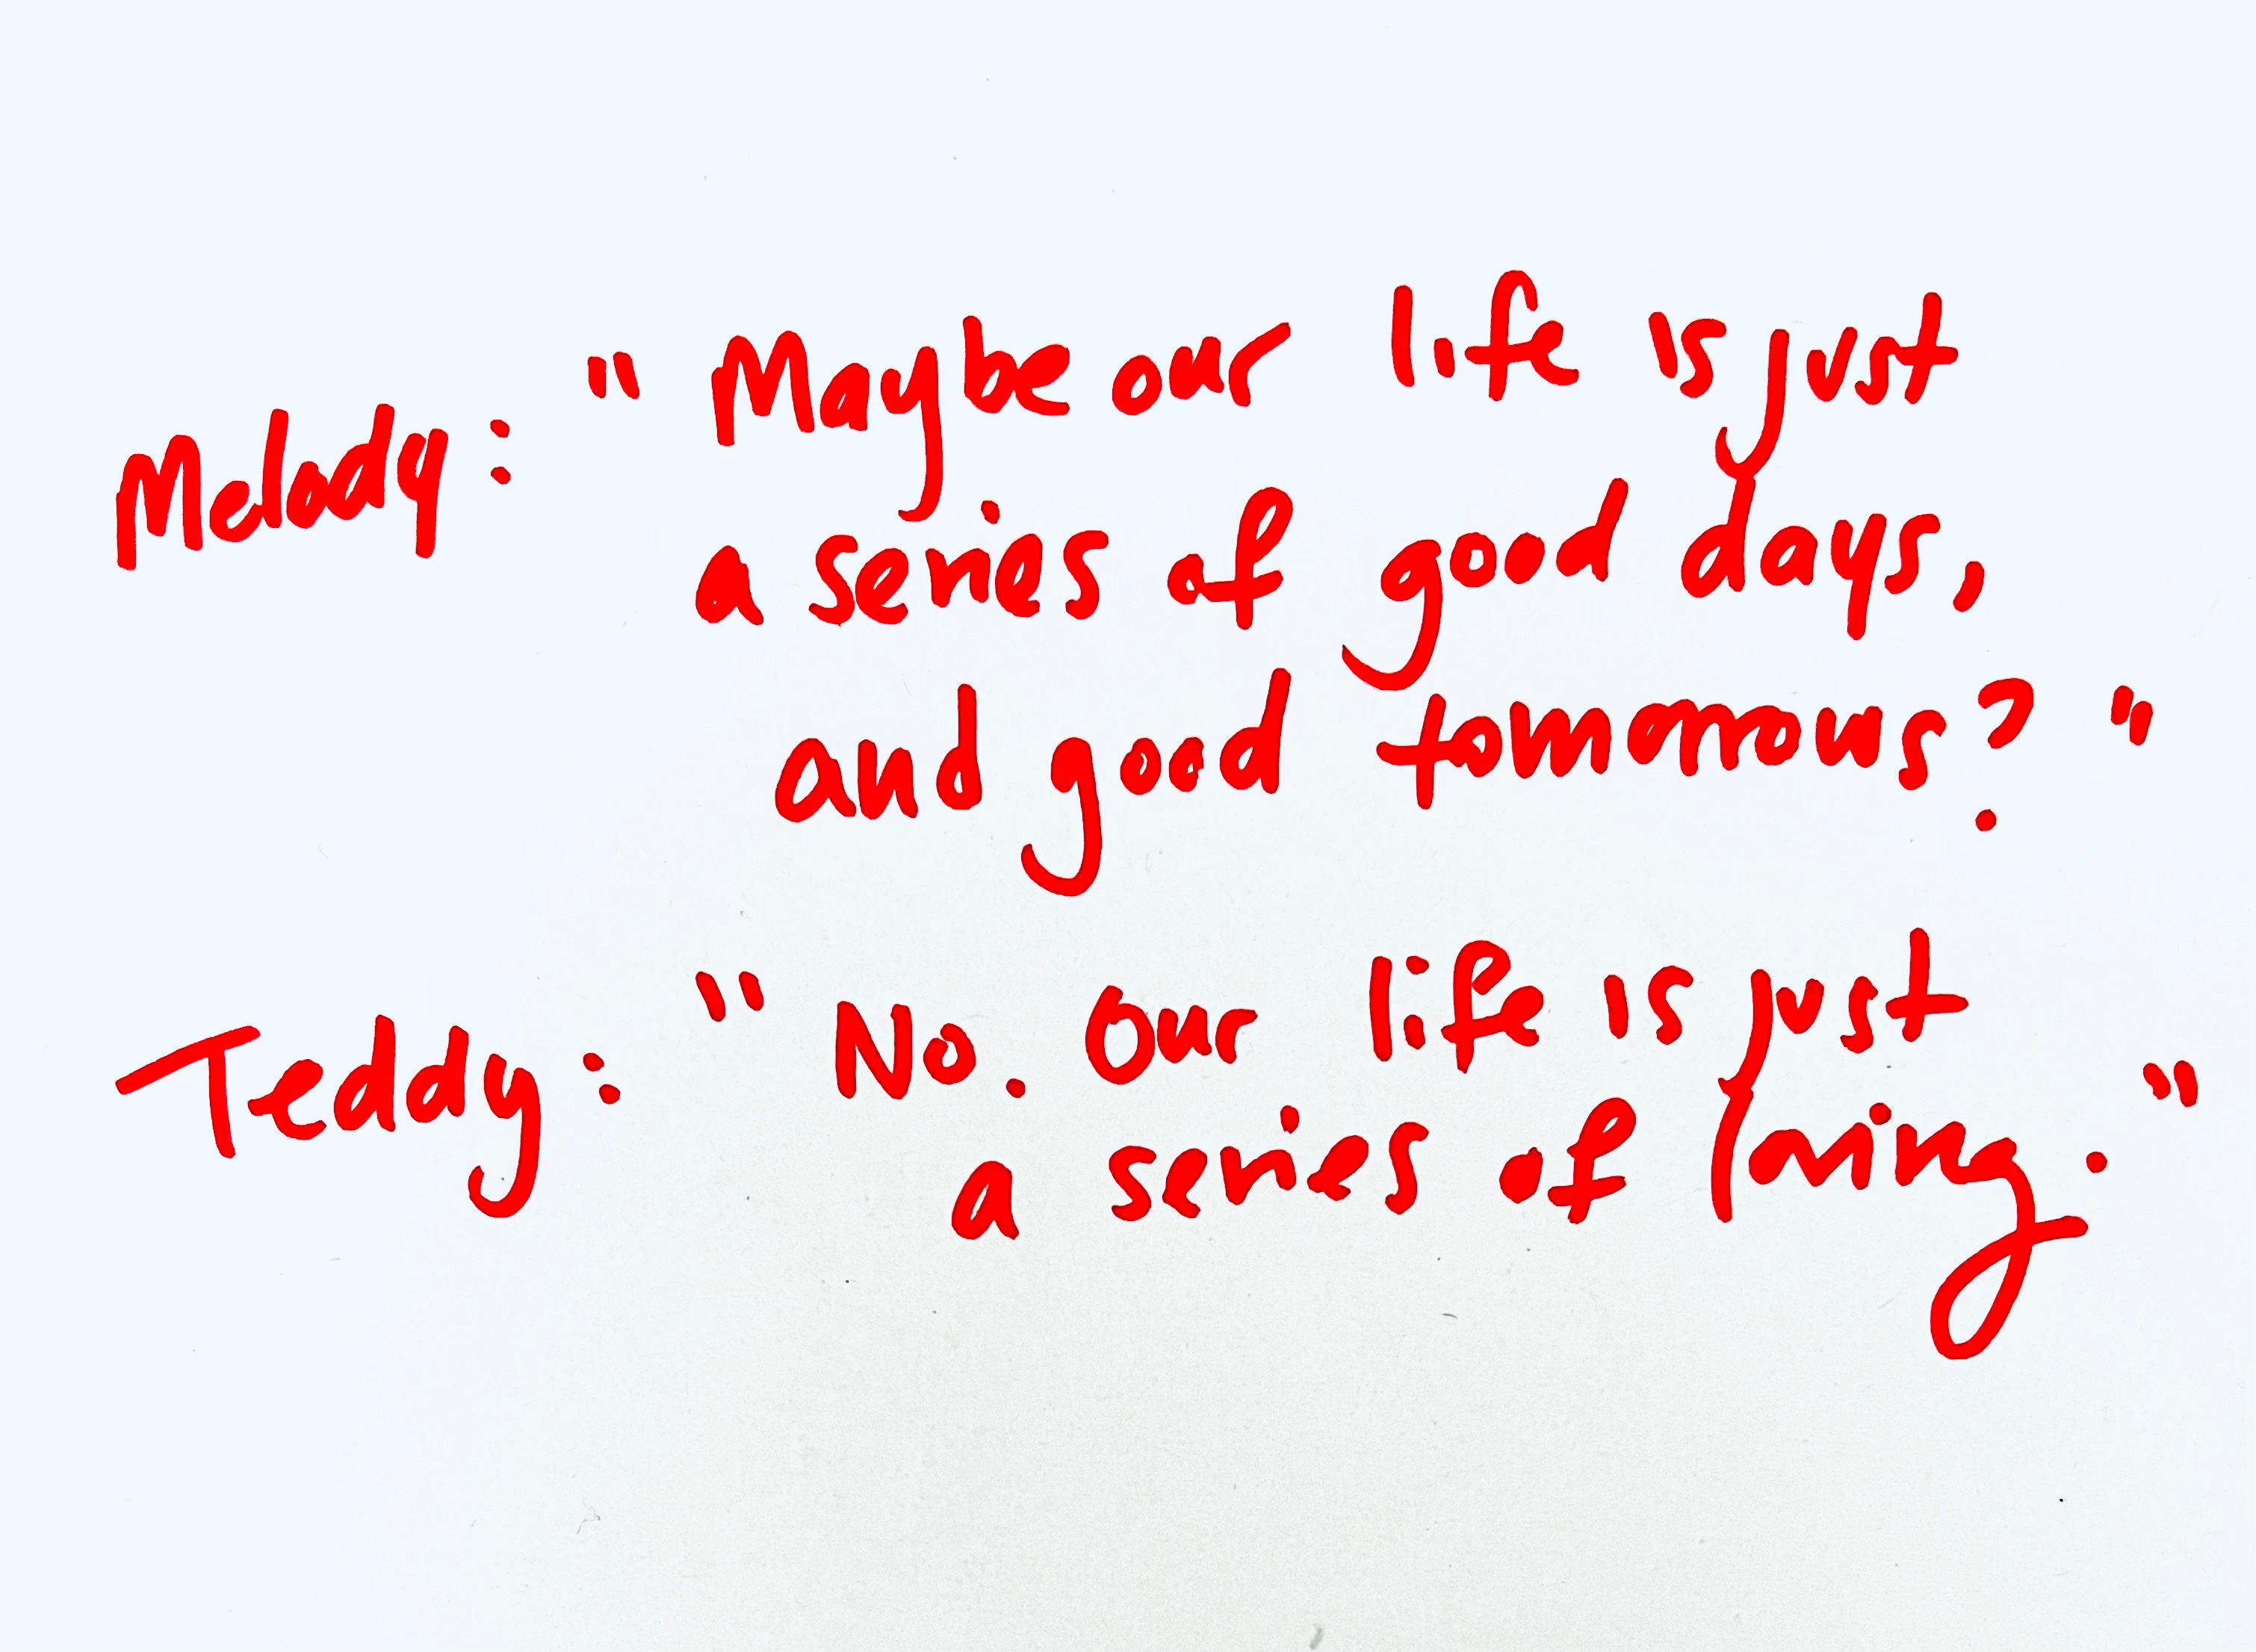 Melody: "Maybe our life is just
a series of good days,
and good tomorrows?"
Teddy: "No. Our life is just
a series of loving."